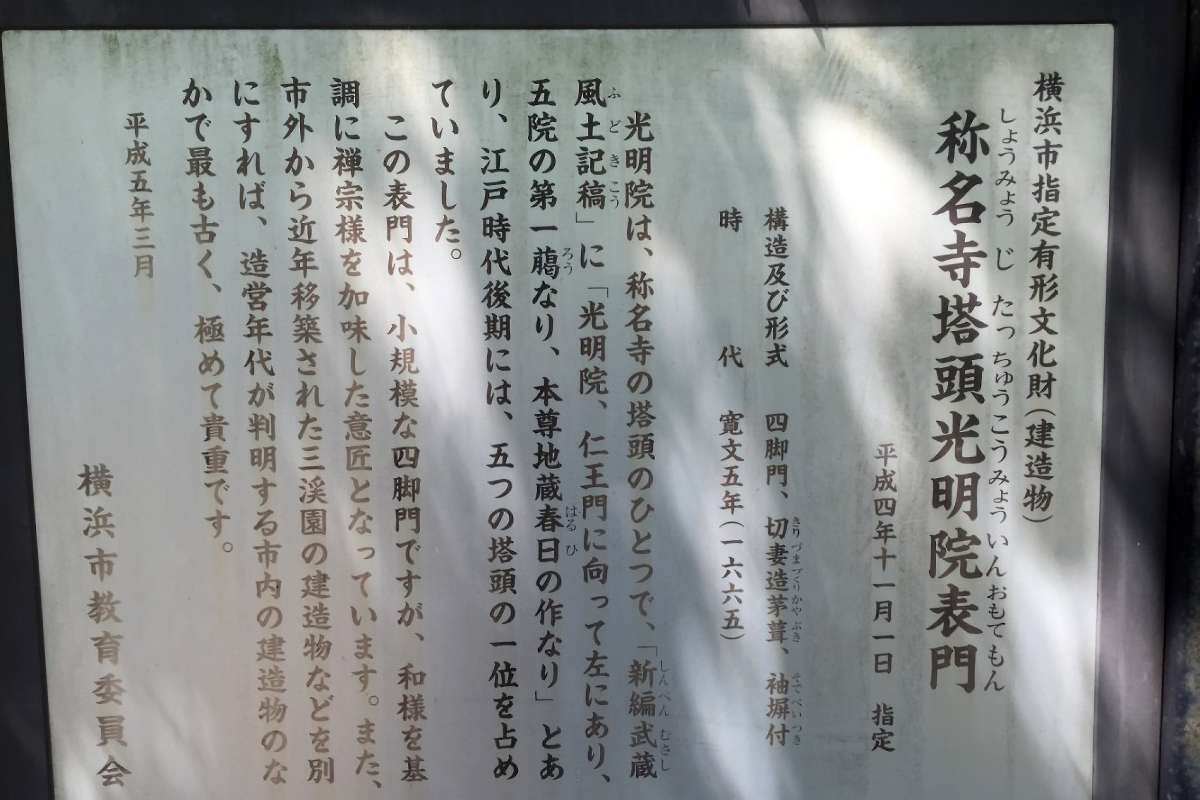 横浜市指定有形文化財(建造物)
しょうみょう じ たっ ちゅうこうみょう いん おもてもん
称名寺塔頭光明院表門
平成四年十一月一日 指定
構造及び形式 四脚門、切妻造茅葺、袖塀付
きりづまづくりかやぶき そでべいつき
時代 寛文五年(一六六五)
光明院は、称名寺の塔頭のひとつで、「新編武蔵
しんぺん むさし
風土記稿」に「光明院、仁王門に向って左にあり、
ふどきこう
五院の第一﨟なり、本尊地蔵春日の作なり」とあ
ろう はるひ
り、江戸時代後期には、五つの塔頭の一位を占め
ていました。
この表門は、小規模な四脚門ですが、和様を基
調に禅宗様を加味した意匠となっています。また、
市外から近年移築された三渓園の建造物などを別
にすれば、造営年代が判明する市内の建造物のな
かで最も古く、極めて貴重です。
平成五年三月
横浜市教育委員会